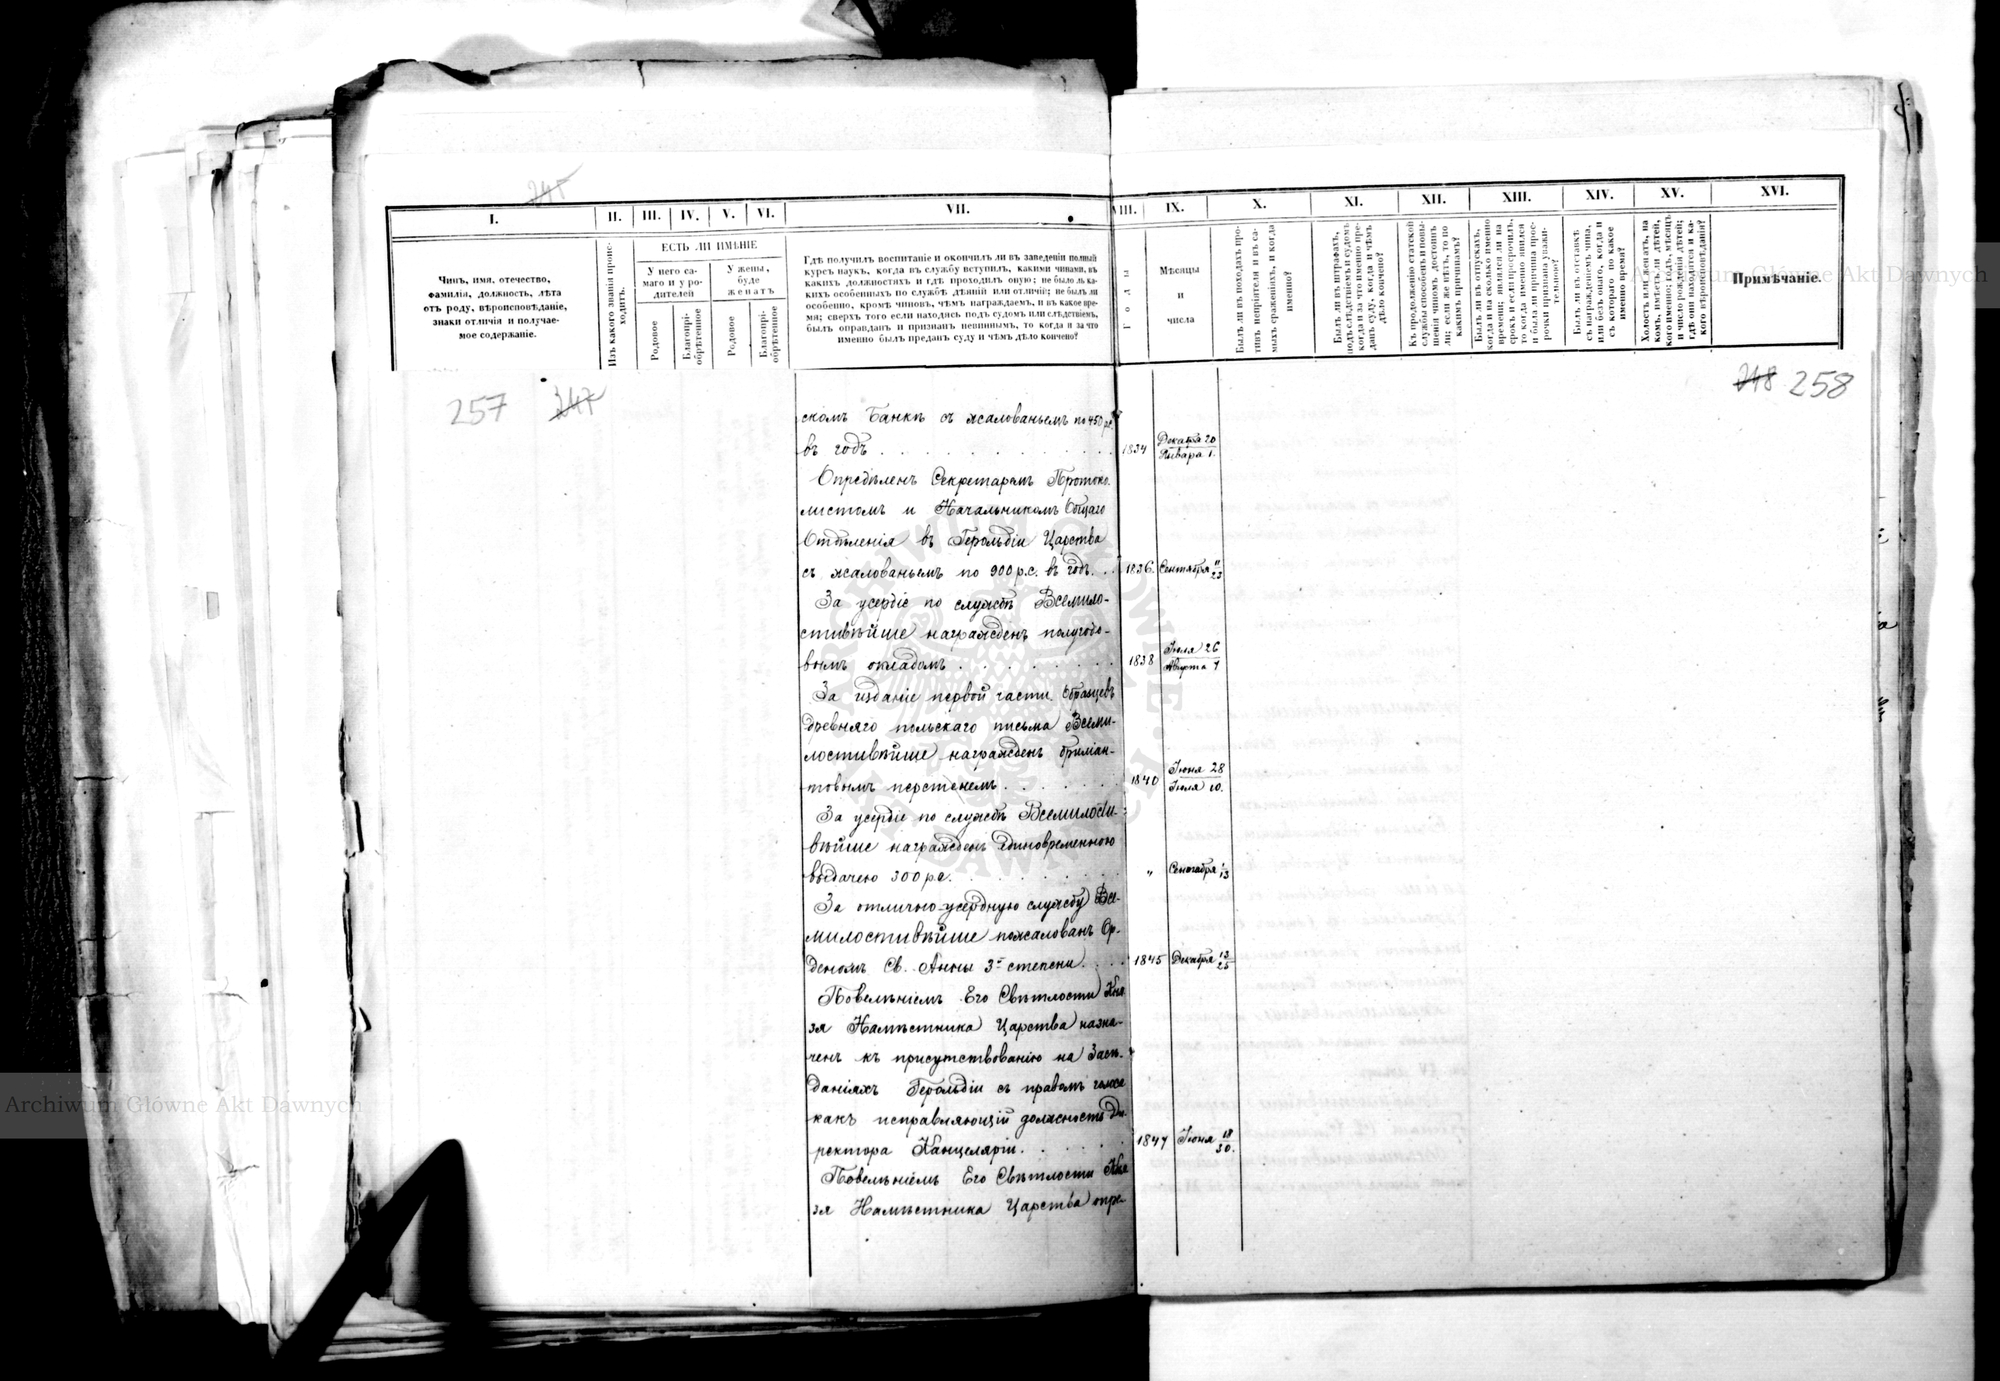 245
I.
II.
III.
IV.
V.
VI.
VII.
VIII.
IX.
X.
XI.
XII.
XIII.
XIV.
XV.
XVI.
Чинъ, имя, отечество,
фамилія, должность, лѣта
отъ роду, вѣроисповѣданіе,
знаки отличія и получае-
мое содержаніе.
Изъ какого званія проис-
ходитъ.
ЕСТЬ ЛИ ИМѢНІЕ
У него са-
маго и у ро-
дителей
У жены,
буде
женатъ
Родовое
Благопрі-
обрѣтенное
Родовое
Благопрі-
обрѣтенное
Гдѣ получилъ воспитаніе и окончилъ ли въ заведеніи полный
курсъ наукъ, когда въ службу вступилъ, какими чинами, въ
какихъ должностяхъ и гдѣ проходилъ оную; не было ль ка-
кихъ особенныхъ по службѣ дѣяній или отличій; не былъ ли
особенно, кромѣ чиновъ, чѣмъ награждаемъ, и въ какое вре-
мя; сверхъ того если находясь подъ судомъ или слѣдствіемъ,
былъ оправданъ и признанъ невиннымъ, то когда и за что
именно былъ преданъ суду и чѣмъ дѣло кончено?
Годы
Мѣсяцы
и
числа
Былъ ли въ походахъ про-
тивъ непріятеля и въ са-
мыхъ сраженіяхъ, и когда
именно?
Былъ ли въ штрафахъ,
подъ слѣдствіемъ и судомъ
когда и за что именно пре-
данъ суду, когда и чѣмъ
дѣло кончено?
Къ продолженію статской
службы способенъ и повы-
шенія чиномъ достоинъ
ли; если же нѣтъ, то по
какимъ причинамъ?
Былъ ли въ отпускахъ,
когда и на сколько именно
времени; являлся ли на
срокъ и если просрочилъ,
то когда именно явился
и была ли причина прос-
рочки признана уважи-
тельною?
Былъ ли въ отставкѣ
съ награжденіемъ чина,
или безъ онаго, когда и
съ котораго по какое
именно время?
Холостъ или женатъ, на
комъ, имѣетъ ли дѣтей,
кого именно; годъ, мѣсяцъ
и число рожденія дѣтей;
гдѣ они находятся и ка-
кого вѣроисповѣданія?
Примѣчаніе.
257 247
248 258
скомъ Банкѣ съ жалованьемъ по 450 р.с.
въ годъ . . . 1834 Декабря 20 Января 1.
Опредѣленъ Секретаремъ Протоко-
листомъ и Начальникомъ Общаго
Отдѣленія въ Герольдіи Царства
съ жалованьемъ по 900 р.с. въ годъ. . 1836. Сентября 11/23
За усердіе по службѣ Всемило-
стивѣйше награжденъ полугодо-
вымъ окладомъ . . . 1838 Іюля 26 Августа 7
За изданіе первой части Образцевъ
древняго польскаго письма Всеми-
лостивѣйше награжденъ бриліан-
товымъ перстенемъ . . . 1840 Іюня 28 Іюля 10.
За усердіе по службѣ Всемилости-
вѣйше награжденъ единовременною
выдачею 300 р.с. . . . „ Сентября 1/13
За отлично-усердную службу Все-
милостивѣйше пожалованъ Ор-
деномъ Св. Анны 3й степени. . . 1845 Декабря 13/25
Повелѣніемъ Его Свѣтлости Кня-
зя Намѣстника Царства назна-
ченъ къ присутствованію на Засѣ-
даніяхъ Герольдіи съ правомъ голоса
какъ исправляющій должность Ди-
ректора Канцеляріи. . . . 1847 Іюня 18/30.
Повелѣніемъ Его Свѣтлости Кня-
зя Намѣстника Царства опре-
Archiwum Główne Akt Dawnych
Archiwum Główne Akt Dawnych
ARCHIWUM GŁÓWNE AKT DAWNYCH